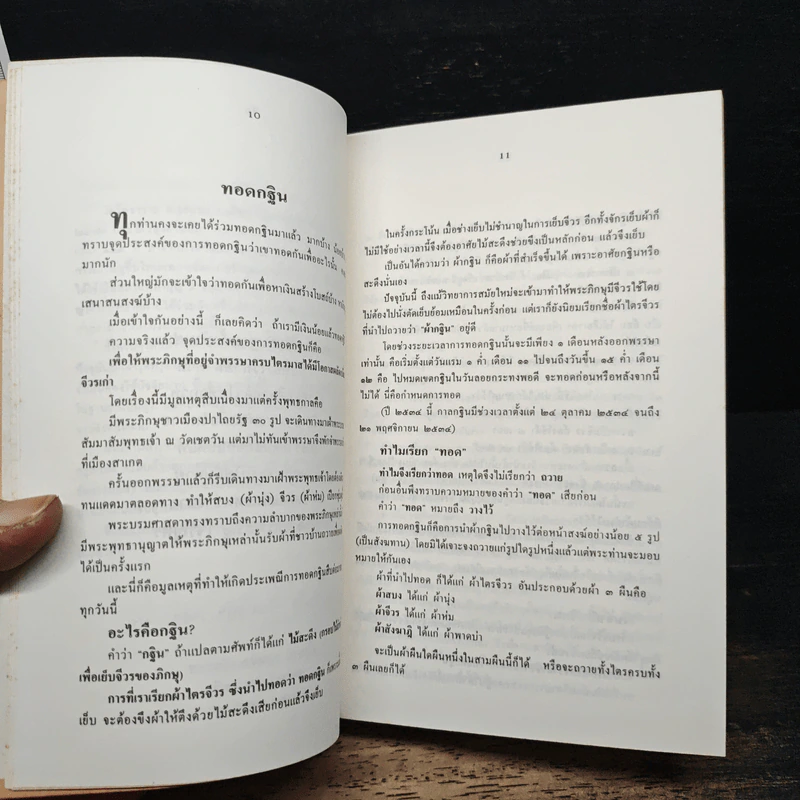 10
ทอดกฐิน
ทุกท่านคงจะเคยได้ร่วมทอดกฐินมาแล้ว มากบ้าง
ทราบจุดประสงค์ของการทอดกฐินว่าเขาทอดกันเพื่ออะไรนั้น
มากนัก
ส่วนใหญ่มักจะเข้าใจว่าทอดกันเพื่อหาเงินสร้างโบสถ์บ้าง
เสนาสนสงฆ์บ้าง
เมื่อเข้าใจกันอย่างนี้ ก็เลยคิดว่า ถ้าเรามีเงินน้อยแล้วทอด
ความจริงแล้ว จุดประสงค์ของการทอดกฐินก็คือ
เพื่อให้พระภิกษุที่อยู่จำพรรษาครบไตรมาสได้มีโอกาส
จีวรเก่า
โดยเรื่องนี้มีมูลเหตุสืบเนื่องมาแต่ครั้งพุทธกาลคือ
มีพระภิกษุชาวเมืองปาไถยรัฐ ๓๐ รูป จะเดินทางมาเฝ้าพระ
สัมมาสัมพุทธเจ้า ณ วัดเชตวัน แต่มาไม่ทันเข้าพรรษาจึงพัก
ที่เมืองสาเกต
ครั้นออกพรรษาแล้วก็รีบเดินทางมาเฝ้าพระพุทธเจ้าโดย
ทนแดดมาตลอดทาง ทำให้สบง (ผ้านุ่ง) จีวร (ผ้าห่ม)
พระบรมศาสดาทรงทราบถึงความลำบากของพระภิกษุ
มีพระพุทธานุญาตให้พระภิกษุเหล่านั้นรับผ้าที่ชาวบ้าน
ได้เป็นครั้งแรก
และนี่ก็คือมูลเหตุที่ทำให้เกิดประเพณีการทอดกฐินสืบต่อ
ทุกวันนี้
อะไรคือกฐิน?
คำว่า "กฐิน" ถ้าแปลตามศัพท์ก็ได้แก่ ไม้สะดึง
เพื่อเย็บจีวรของภิกษุ)
การที่เราเรียกผ้าไตรจีวร ซึ่งนำไปทอดว่า ทอดกฐิน
เย็บ จะต้องขึงผ้าให้ตึงด้วยไม้สะดึงเสียก่อนแล้วจึงเย็บ
11
ในครั้งกระโน้น เมื่อช่างเย็บไม่ชำนาญในการเย็บจีวร อีกทั้งจักรเย็บผ้าก็
ไม่มีใช้อย่างเวลานี้จึงต้องอาศัยไม้สะดึงช่วยขึงเป็นหลักก่อน แล้วจึงเย็บ
เป็นอันได้ความว่า ผ้ากฐิน ก็คือผ้าที่สำเร็จขึ้นได้ เพราะอาศัยกฐินหรือ
สะดึงนั่นเอง
ปัจจุบันนี้ ถึงแม้วิทยาการสมัยใหม่จะเข้ามาทำให้พระภิกษุมีจีวรใช้โดย
ไม่ต้องไปนั่งตัดเย็บย้อมเหมือนในครั้งก่อน แต่เราก็ยังนิยมเรียกชื่อผ้าไตรจีวร
ที่นำไปถวายว่า "ผ้ากฐิน" อยู่ดี
โดยช่วงระยะเวลาการทอดกฐินนั้นจะมีเพียง ๑ เดือนหลังออกพรรษา
เท่านั้น คือเริ่มตั้งแต่วันแรม ๑ ค่ำ เดือน ๑๑ ไปจนถึงวันขึ้น ๑๕ ค่ำ เดือน
๑๒ คือ ไปหมดเขตกฐินในวันลอยกระทงพอดี จะทอดก่อนหรือหลังจากนี้
ไม่ได้ นี่คือกำหนดการทอด
(ปี ๒๕๓๔ นี้ กาลกฐินมีช่วงเวลาตั้งแต่ ๒๔ ตุลาคม ๒๕๓๔ จนถึง
๒๑ พฤศจิกายน ๒๕๓๔)
ทำไมเรียก "ทอด"
ทำไมจึงเรียกว่าทอด เหตุใดจึงไม่เรียกว่า ถวาย
ก่อนอื่นพึงทราบความหมายของคำว่า "ทอด" เสียก่อน
คำว่า "ทอด" หมายถึง วางไว้
การทอดกฐินก็คือการนำผ้ากฐินไปวางไว้ต่อหน้าสงฆ์อย่างน้อย ๕ รูป
(เป็นสังฆทาน) โดยมิได้เจาะจงถวายแก่รูปใดรูปหนึ่งแล้วแต่พระท่านจะมอบ
หมายให้กันเอง
ผ้าที่นำไปทอด ก็ได้แก่ ผ้าไตรจีวร อันประกอบด้วยผ้า ๓ ผืนคือ
ผ้าสบง ได้แก่ ผ้านุ่ง
ผ้าจีวร ได้แก่ ผ้าห่ม
ผ้าสังฆาฏิ ได้แก่ ผ้าพาดบ่า
จะเป็นผ้าผืนใดผืนหนึ่งในสามผืนนี้ก็ได้ หรือจะถวายทั้งไตรครบทั้ง
๓ ผืนเลยก็ได้